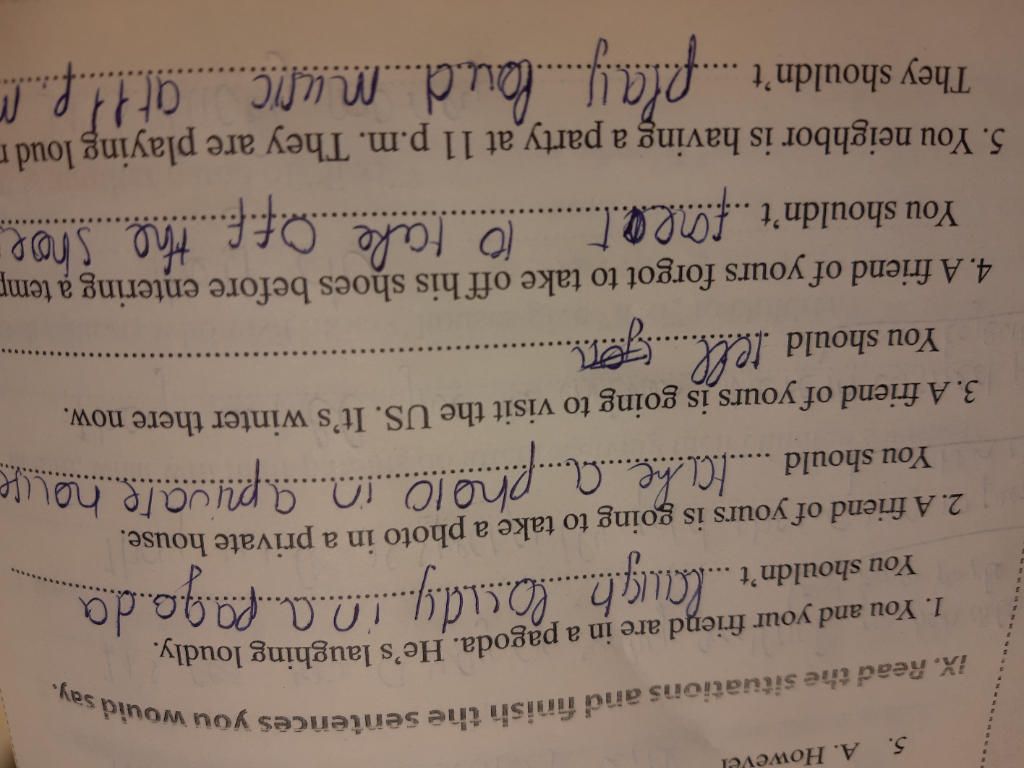 5. A. However
IX. Read the situations and finish the sentences you would say.
1. You and your friend are in a pagoda. He's laughing loudly.
You shouldn't laugh loudy in a pagoda
2. A friend of yours is going to take a photo in a private house.
You should take a photo in a private house
3. A friend of yours is going to visit the US. It's winter there now.
You should tell you
4. A friend of yours forgot to take off his shoes before entering a temp
You shouldn't to take off the shoes
5. You neighbor is having a party at 11 p.m. They are playing loud
They shouldn't play loud music at 11 p.m